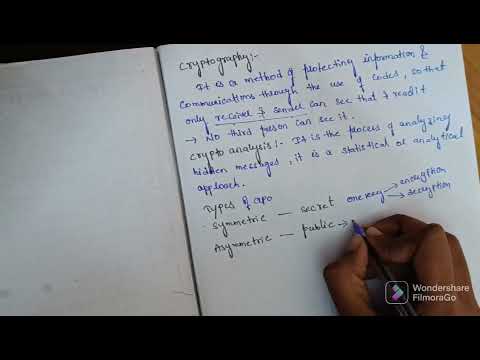 Cryptography:-
It is a method of protecting information &
Communications through the use of codes, so that
only receiver & sender can see that & read it
→ No third person can see it.
crypto analysis:- It is the process of analyzing
hidden messages, it is a statistical or analytical
approach.
Types of
Symmetric — secret one key → encryption
→ decryption
Asymmetric — public →
Wondershare
FilmoraGo